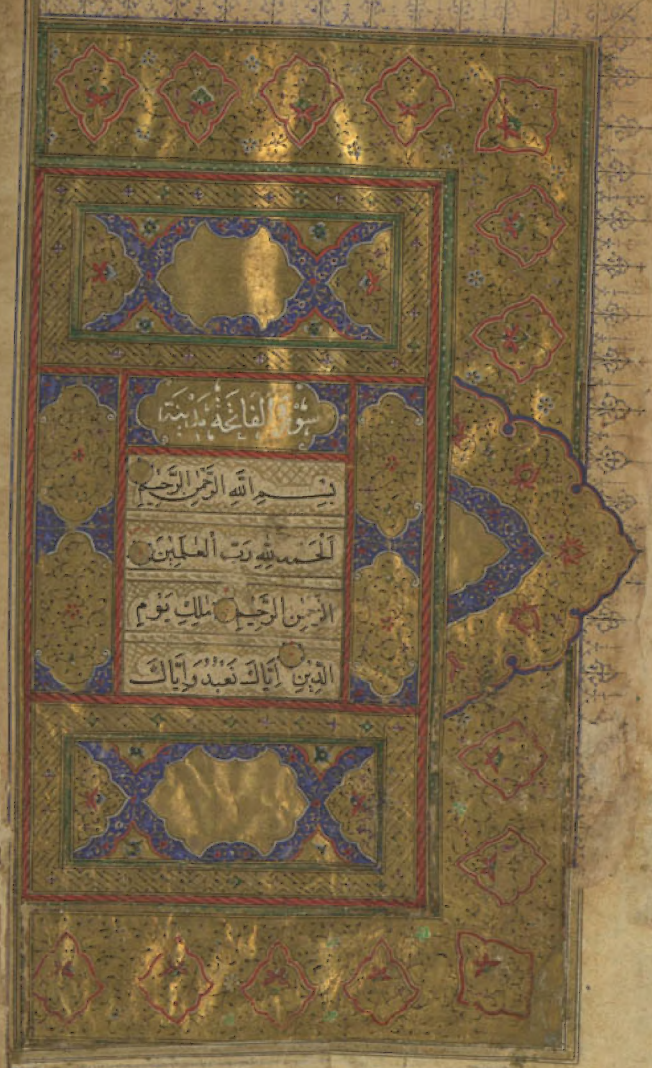 سورة الفاتحة مدنية
بِسْمِ اللّٰهِ الرَّحْمٰنِ الرَّحِيمِ
اَلْحَمْدُ لِلّٰهِ رَبِّ الْعٰلَمِينَ
الرَّحْمٰنِ الرَّحِيمِ مٰلِكِ يَوْمِ
الدِّينِ اِيَّاكَ نَعْبُدُ وَاِيَّاكَ